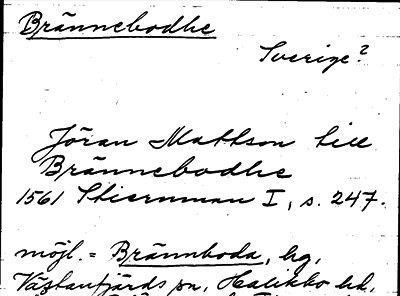 Brännebodhe
Sverige?
Jöran Mattson till
Brännebodhe
1561 Stiernman I, s. 247.
möjl. = Brännboda, hg,
Västanfjärds sn, Halikko hd,